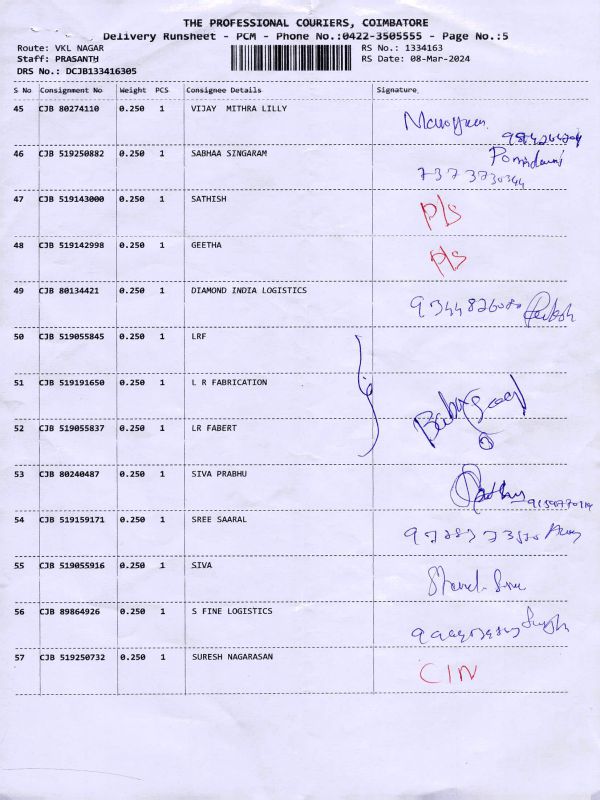 THE PROFESSIONAL COURIERS, COIMBATORE
Delivery Runsheet - PCM - Phone No.:0422-3505555 - Page No.:5
Route: VKL NAGAR RS No.: 1334163
Staff: PRASANTH RS Date: 08-Mar-2024
DRS No.: DCJB133416305
S No Consignment No Weight PCS Consignee Details Signature
45 CJB 80274110 0.250 1 VIJAY MITHRA LILLY
46 CJB 519250882 0.250 1 SABHAA SINGARAM
47 CJB 519143000 0.250 1 SATHISH P/S
48 CJB 519142998 0.250 1 GEETHA P/S
49 CJB 80134421 0.250 1 DIAMOND INDIA LOGISTICS
50 CJB 519055845 0.250 1 LRF
51 CJB 519191650 0.250 1 L R FABRICATION
52 CJB 519055837 0.250 1 LR FABERT
53 CJB 80240487 0.250 1 SIVA PRABHU
54 CJB 519159171 0.250 1 SREE SAARAL
55 CJB 519055916 0.250 1 SIVA
56 CJB 89864926 0.250 1 S FINE LOGISTICS
57 CJB 519250732 0.250 1 SURESH NAGARASAN CIN